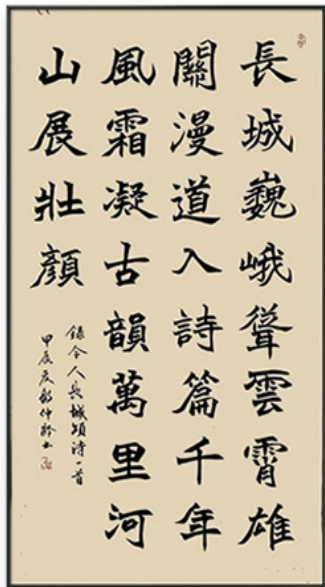 長城巍峨聳雲霄雄
關漫道入詩篇千年
風霜凝古韻萬里河
山展壯顏
錄今人長城頌詩一首
甲辰夏郝仲齡書